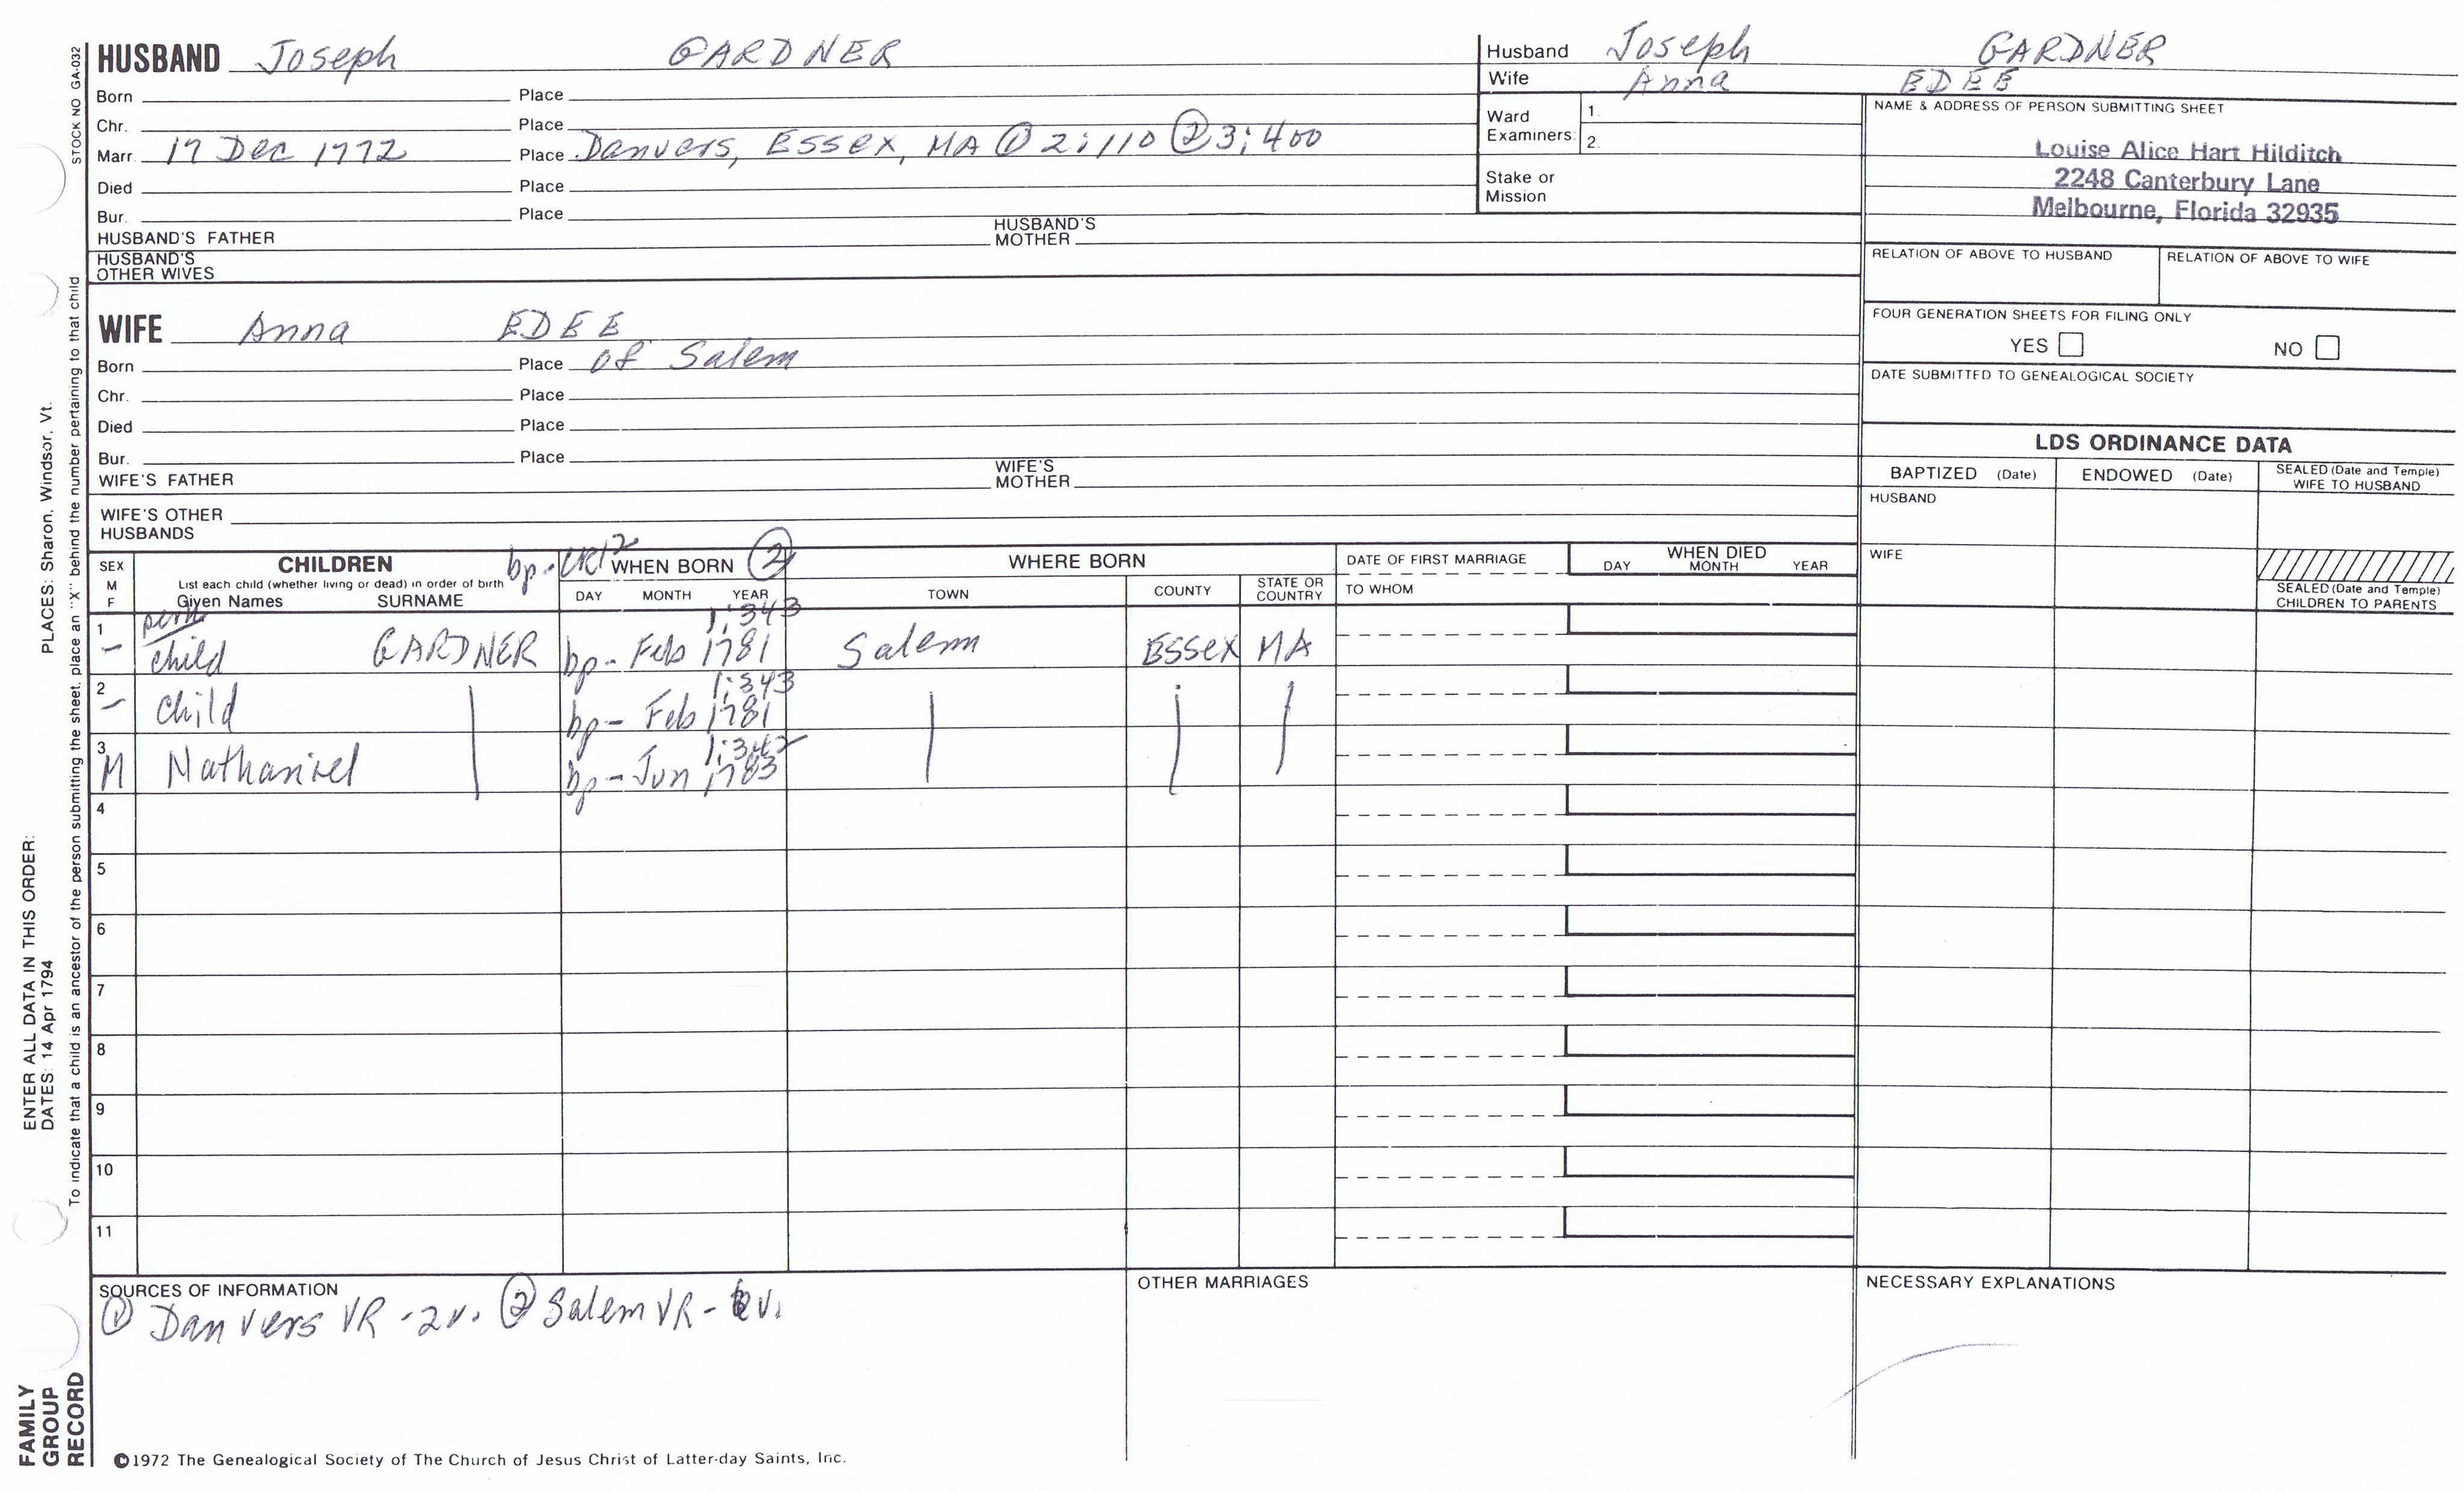 HUSBAND Joseph GARDNER
Born Place
Chr. Place
Marr. 17 Dec 1772 Place Danvers, Essex, MA ① 2:110 ② 3:400
Died Place
Bur. Place
HUSBAND'S FATHER HUSBAND'S MOTHER
HUSBAND'S OTHER WIVES
Husband Joseph GARDNER
Wife Anna EDEE
Ward Examiners: 1. 2.
Stake or Mission
NAME & ADDRESS OF PERSON SUBMITTING SHEET
Louise Alice Hart Hilditch
2248 Canterbury Lane
Melbourne, Florida 32935
RELATION OF ABOVE TO HUSBAND RELATION OF ABOVE TO WIFE
FOUR GENERATION SHEETS FOR FILING ONLY
YES NO
DATE SUBMITTED TO GENEALOGICAL SOCIETY
WIFE Anna EDEE
Born Place of Salem
Chr. Place
Died Place
Bur. Place
WIFE'S FATHER WIFE'S MOTHER
WIFE'S OTHER HUSBANDS
LDS ORDINANCE DATA
BAPTIZED (Date) ENDOWED (Date) SEALED (Date and Temple) WIFE TO HUSBAND
HUSBAND
WIFE
SEALED (Date and Temple) CHILDREN TO PARENTS
SEX M F
CHILDREN
List each child (whether living or dead) in order of birth
Given Names SURNAME
bp-
WHEN BORN ②
DAY MONTH YEAR
WHERE BORN
TOWN COUNTY STATE OR COUNTRY
DATE OF FIRST MARRIAGE
TO WHOM
WHEN DIED
DAY MONTH YEAR
1:343
1 - child GARDNER bp- Feb 1781 Salem Essex MA
1:343
2 - child bp- Feb 1781
1:342
3 M Nathaniel bp- Jun 1783
4
5
6
7
8
9
10
11
SOURCES OF INFORMATION
① Danvers VR -2v. ② Salem VR - 6v.
OTHER MARRIAGES
NECESSARY EXPLANATIONS
©1972 The Genealogical Society of The Church of Jesus Christ of Latter-day Saints, Inc.
STOCK NO GA-032
To indicate that a child is an ancestor of the person submitting the sheet, place an "X" behind the number pertaining to that child
ENTER ALL DATA IN THIS ORDER:
DATES: 14 Apr 1794 PLACES: Sharon, Windsor, Vt.
FAMILY
GROUP
RECORD